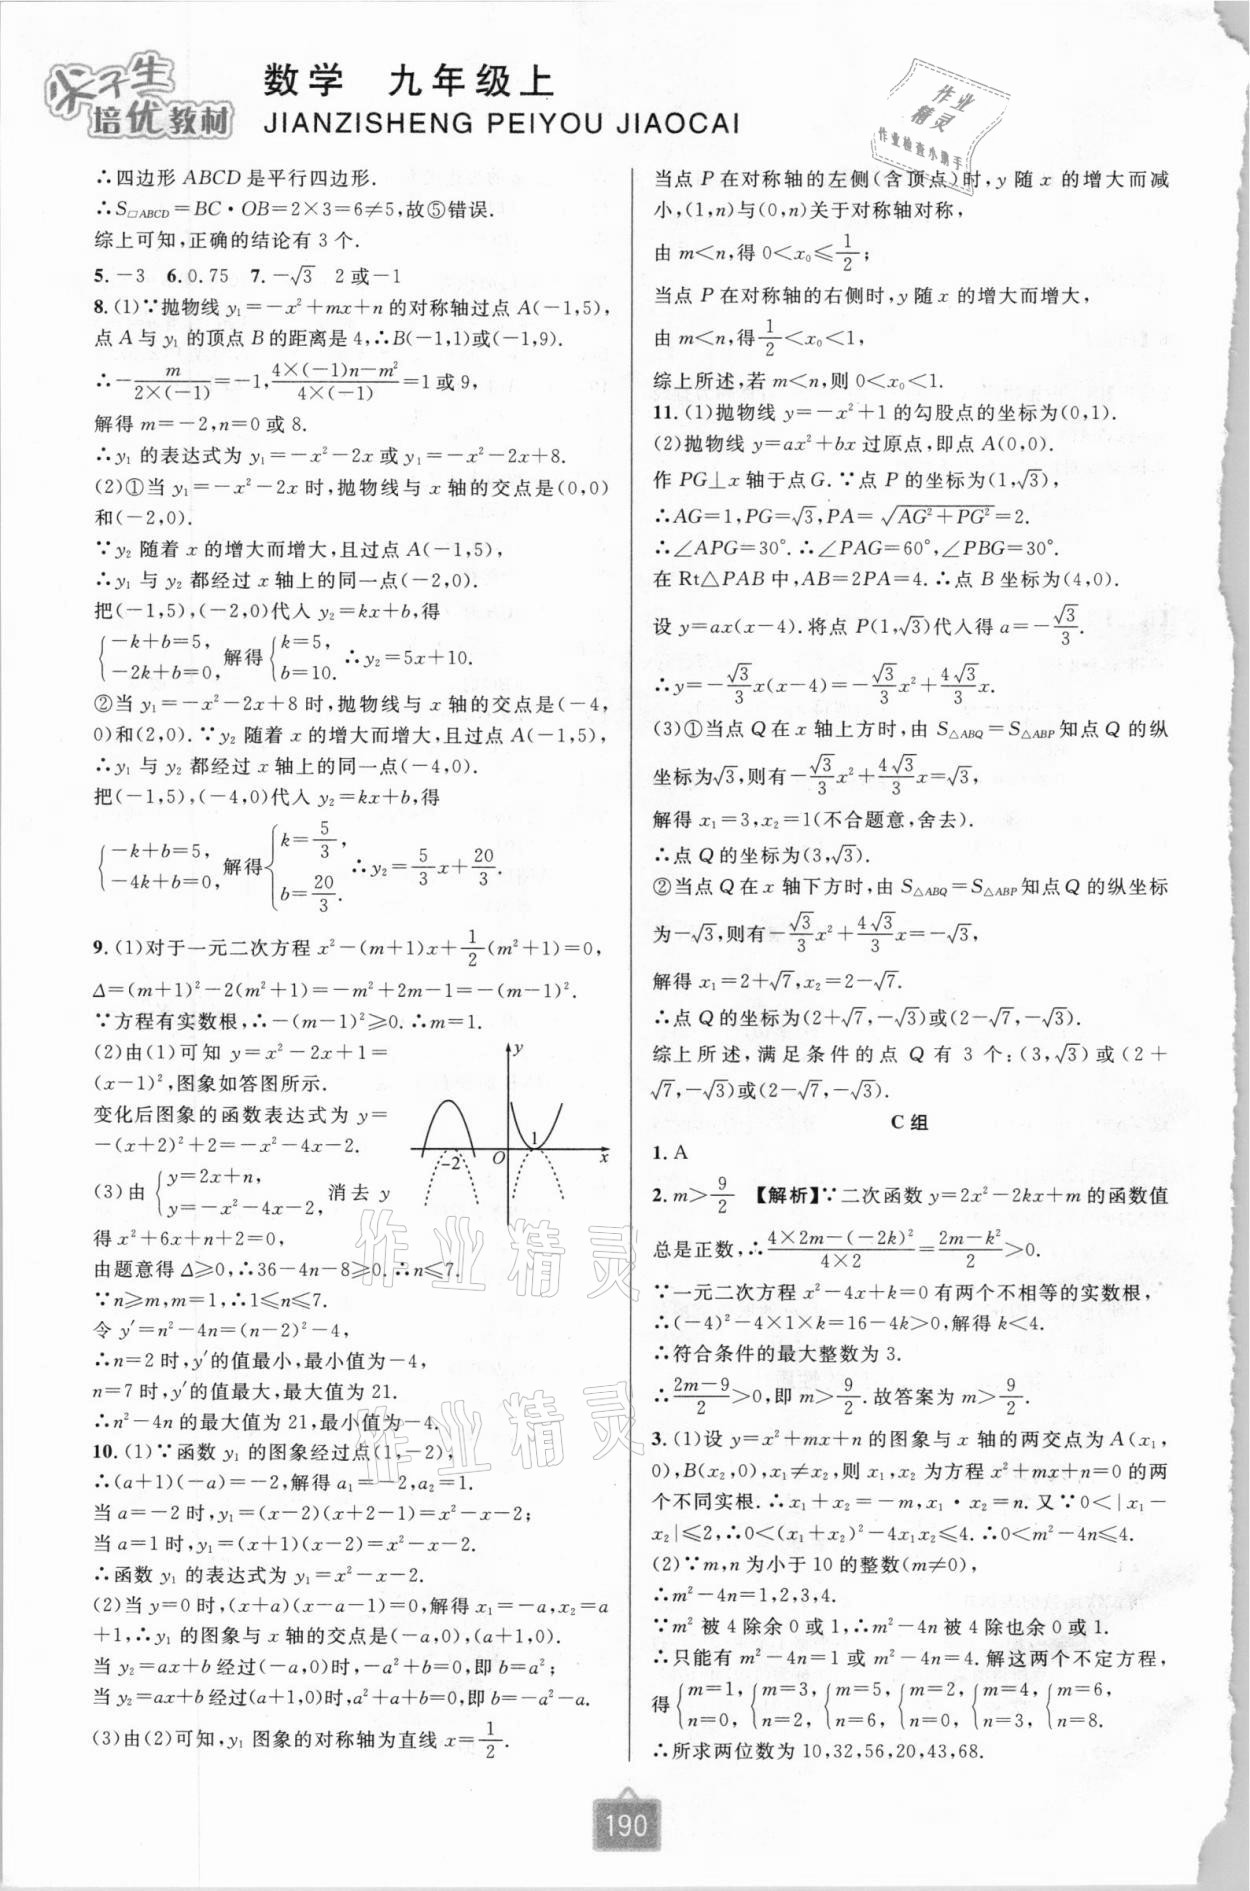 尖子生
培优教材
数学 九年级上
JIANZISHENG PEIYOU JIAOCAI
作业
精灵
作业检查小助手
∴四边形 ABCD 是平行四边形.
∴S□ABCD=BC·OB=2×3=6≠5,故⑤错误.
综上可知,正确的结论有 3 个.
5.-3 6.0.75 7.-√3 2或-1
8.(1)∵抛物线 y₁=-x²+mx+n 的对称轴过点 A(-1,5),
点 A 与 y₁ 的顶点 B 的距离是 4,∴B(-1,1)或(-1,9).
∴-m/(2×(-1))=-1,(4×(-1)n-m²)/(4×(-1))=1或9,
解得 m=-2,n=0 或 8.
∴y₁ 的表达式为 y₁=-x²-2x 或 y₁=-x²-2x+8.
(2)①当 y₁=-x²-2x 时,抛物线与 x 轴的交点是(0,0)
和(-2,0).
∵y₂ 随着 x 的增大而增大,且过点 A(-1,5),
∴y₁ 与 y₂ 都经过 x 轴上的同一点(-2,0).
把(-1,5),(-2,0)代入 y₂=kx+b,得
{-k+b=5, -2k+b=0, 解得{k=5, b=10. ∴y₂=5x+10.
②当 y₁=-x²-2x+8 时,抛物线与 x 轴的交点是(-4,
0)和(2,0).∵y₂ 随着 x 的增大而增大,且过点 A(-1,5),
∴y₁ 与 y₂ 都经过 x 轴上的同一点(-4,0).
把(-1,5),(-4,0)代入 y₂=kx+b,得
{-k+b=5, -4k+b=0, 解得{k=5/3, b=20/3. ∴y₂=5/3x+20/3.
9.(1)对于一元二次方程 x²-(m+1)x+1/2(m²+1)=0,
Δ=(m+1)²-2(m²+1)=-m²+2m-1=-(m-1)².
∵方程有实数根,∴-(m-1)²≥0.∴m=1.
(2)由(1)可知 y=x²-2x+1=
(x-1)²,图象如答图所示.
变化后图象的函数表达式为 y=
-(x+2)²+2=-x²-4x-2.
(3)由{y=2x+n, y=-x²-4x-2, 消去 y
得 x²+6x+n+2=0,
由题意得 Δ≥0,∴36-4n-8≥0.∴n≤7.
∵n≥m,m=1,∴1≤n≤7.
令 y′=n²-4n=(n-2)²-4,
∴n=2 时,y′的值最小,最小值为-4,
n=7 时,y′的值最大,最大值为 21.
∴n²-4n 的最大值为 21,最小值为-4.
y
-2 O 1 x
10.(1)∵函数 y₁ 的图象经过点(1,-2),
∴(a+1)(-a)=-2,解得 a₁=-2,a₂=1.
当 a=-2 时,y₁=(x-2)(x+2-1)=x²-x-2;
当 a=1 时,y₁=(x+1)(x-2)=x²-x-2.
∴函数 y₁ 的表达式为 y₁=x²-x-2.
(2)当 y=0 时,(x+a)(x-a-1)=0,解得 x₁=-a,x₂=a
+1,∴y₁ 的图象与 x 轴的交点是(-a,0),(a+1,0).
当 y₂=ax+b 经过(-a,0)时,-a²+b=0,即 b=a²;
当 y₂=ax+b 经过(a+1,0)时,a²+a+b=0,即 b=-a²-a.
(3)由(2)可知,y₁ 图象的对称轴为直线 x=1/2.
当点 P 在对称轴的左侧(含顶点)时,y 随 x 的增大而减
小,(1,n)与(0,n)关于对称轴对称,
由 m<n,得 0<x₀≤1/2;
当点 P 在对称轴的右侧时,y 随 x 的增大而增大,
由 m<n,得1/2<x₀<1,
综上所述,若 m<n,则 0<x₀<1.
11.(1)抛物线 y=-x²+1 的勾股点的坐标为(0,1).
(2)抛物线 y=ax²+bx 过原点,即点 A(0,0).
作 PG⊥x 轴于点 G.∵点 P 的坐标为(1,√3),
∴AG=1,PG=√3,PA=√(AG²+PG²)=2.
∴∠APG=30°.∴∠PAG=60°,∠PBG=30°.
在 Rt△PAB 中,AB=2PA=4.∴点 B 坐标为(4,0).
设 y=ax(x-4).将点 P(1,√3)代入得 a=-√3/3.
∴y=-√3/3x(x-4)=-√3/3x²+4√3/3x.
(3)①当点 Q 在 x 轴上方时,由 S△ABQ=S△ABP 知点 Q 的纵
坐标为√3,则有-√3/3x²+4√3/3x=√3,
解得 x₁=3,x₂=1(不合题意,舍去).
∴点 Q 的坐标为(3,√3).
②当点 Q 在 x 轴下方时,由 S△ABQ=S△ABP 知点 Q 的纵坐标
为-√3,则有-√3/3x²+4√3/3x=-√3,
解得 x₁=2+√7,x₂=2-√7.
∴点 Q 的坐标为(2+√7,-√3)或(2-√7,-√3).
综上所述,满足条件的点 Q 有 3 个:(3,√3)或(2+
√7,-√3)或(2-√7,-√3).
C组
1.A
2.m>9/2 【解析】∵二次函数 y=2x²-2kx+m 的函数值
总是正数,∴(4×2m-(-2k)²)/(4×2)=(2m-k²)/2>0.
∵一元二次方程 x²-4x+k=0 有两个不相等的实数根,
∴(-4)²-4×1×k=16-4k>0,解得 k<4.
∴符合条件的最大整数为 3.
∴(2m-9)/2>0,即 m>9/2.故答案为 m>9/2.
3.(1)设 y=x²+mx+n 的图象与 x 轴的两交点为 A(x₁,
0),B(x₂,0),x₁≠x₂,则 x₁,x₂ 为方程 x²+mx+n=0 的两
个不同实根.∴x₁+x₂=-m,x₁·x₂=n.又∵0<|x₁-
x₂|≤2,∴0<(x₁+x₂)²-4x₁x₂≤4.∴0<m²-4n≤4.
(2)∵m,n 为小于 10 的整数(m≠0),
∴m²-4n=1,2,3,4.
∵m² 被 4 除余 0 或 1,∴m²-4n 被 4 除也余 0 或 1.
∴只能有 m²-4n=1 或 m²-4n=4.解这两个不定方程,
得{m=1, n=0, {m=3, n=2, {m=5, n=6, {m=2, n=0, {m=4, n=3, {m=6, n=8.
∴所求两位数为 10,32,56,20,43,68.
作业精灵
作业精灵
190